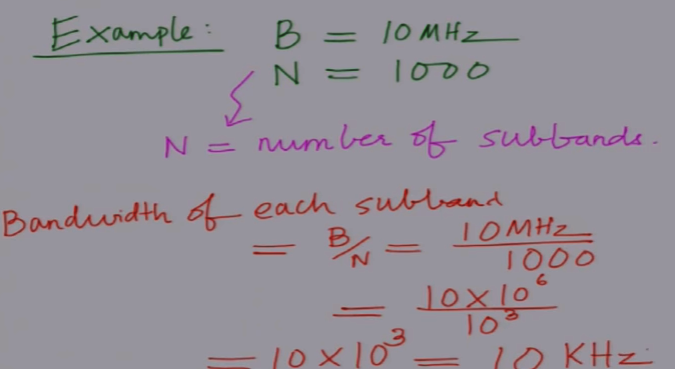 Example: B = 10 MHz
N = 1000
N = number of subbands.
Bandwidth of each subband
= B/N = 10MHz/1000
= 10×10⁶/10³
= 10×10³ = 10 KHz.